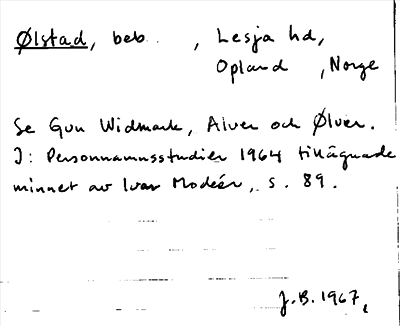 Ølstad, beb. , Lesja hd,
Opland , Norge
Se Gun Widmark, Alver och Ølver.
I: Personnamnsstudier 1964 tillägnade
minnet av Ivar Modéer, s. 89.
J.B. 1967